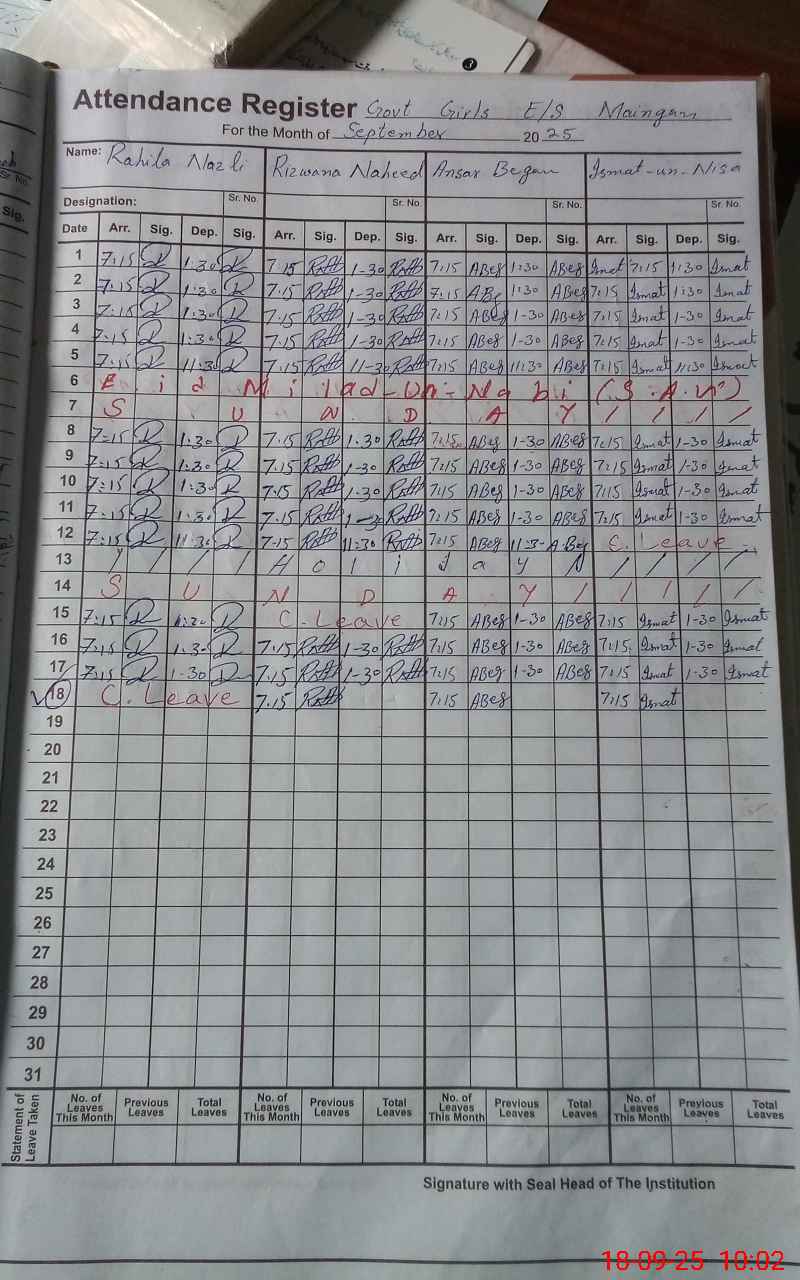 Attendance Register Govt Girls E/S Maingan
For the Month of September 2025
Name: Rahila Nazli Rizwana Naheed Ansar Began Ismat-un-Nisa
Sr. No. Sr. No. Sr. No. Sr. No.
Designation:
Date Arr. Sig. Dep. Sig. Arr. Sig. Dep. Sig. Arr. Sig. Dep. Sig. Arr. Sig. Dep. Sig.
1 7:15 1:30 7.15 1-30 7:15 ABeg 1:30 ABeg Ismat 7:15 1:30 Ismat
2 7:15 1:30 7.15 1-30 7:15 ABeg 1:30 ABeg 7:15 Ismat 1:30 Ismat
3 7:15 1:30 7.15 1-30 7:15 ABeg 1-30 ABeg 7:15 Ismat 1-30 Ismat
4 7:15 1:30 7.15 1-30 7:15 ABeg 1-30 ABeg 7:15 Ismat 1-30 Ismat
5 7:15 11:30 7.15 11-30 7:15 ABeg 11:30 ABeg 7:15 Ismat 11:30 Ismat
6 Eid Milad-Un-Nabi (S.A.W)
7 S U N D A Y / / / /
8 7:15 1:30 7.15 1.30 7:15 ABeg 1-30 ABeg 7:15 Ismat 1-30 Ismat
9 7:15 1:30 7.15 1-30 7:15 ABeg 1-30 ABeg 7:15 Ismat 1-30 Ismat
10 7:15 1:30 7.15 1.30 7:15 ABeg 1-30 ABeg 7:15 Ismat 1-30 Ismat
11 7:15 1:30 7.15 1-30 7:15 ABeg 1-30 ABeg 7:15 Ismat 1-30 Ismat
12 7:15 11:30 7.15 11:30 7:15 ABeg 11:3- A.Beg C. Leave
13 / / / / H o l i d a y / / / /
14 S U N D A Y / / / /
15 7:15 1:30 C. Leave 7:15 ABeg 1-30 ABeg 7:15 Ismat 1-30 Ismat
16 7:15 1:30 7.15 1-30 7:15 ABeg 1-30 ABeg 7:15 Ismat 1-30 Ismat
17 7:15 1-30 7.15 1-30 7:15 ABeg 1-30 ABeg 7:15 Ismat 1-30 Ismat
18 C. Leave 7.15 7:15 ABeg 7:15 Ismat
19
20
21
22
23
24
25
26
27
28
29
30
31
Statement of Leave Taken
No. of Leaves This Month Previous Leaves Total Leaves No. of Leaves This Month Previous Leaves Total Leaves No. of Leaves This Month Previous Leaves Total Leaves No. of Leaves This Month Previous Leaves Total Leaves
Signature with Seal Head of The Institution
18-09-25 10:02